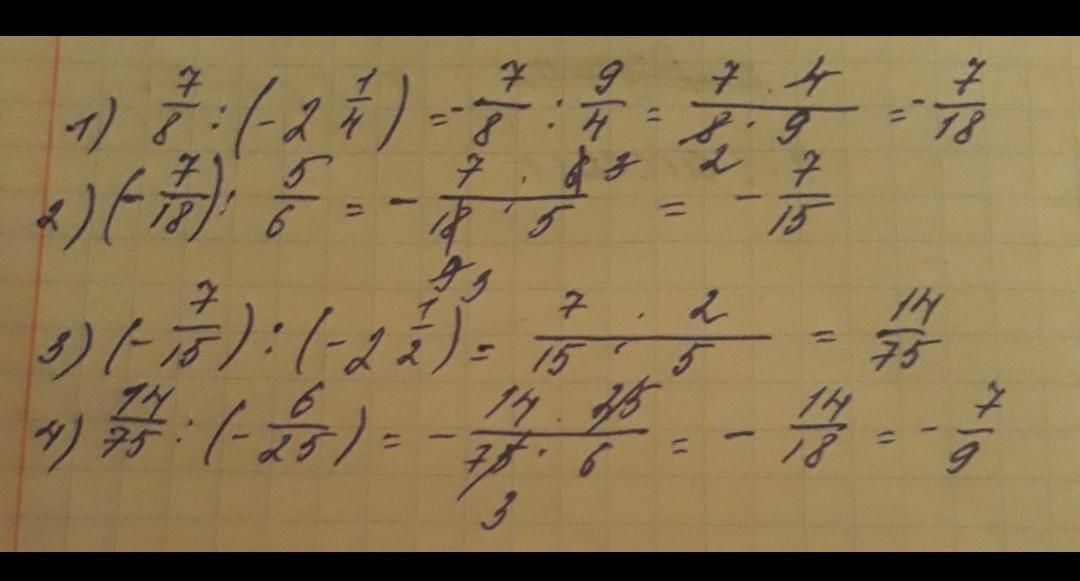 1) 7/8 : (-2 1/4) = - 7/8 : 9/4 = 7 · 4 / 8 · 9 = - 7/18
2
2) (- 7/18) : 5/6 = - 7 · 6 3 / 18 · 5 = - 7/15
9 3
3) (- 7/15) : (-2 1/2) = 7 · 2 / 15 · 5 = 14/75
4) 14/75 : (- 6/25) = - 14 · 25 / 75 · 6 = - 14/18 = - 7/9
3